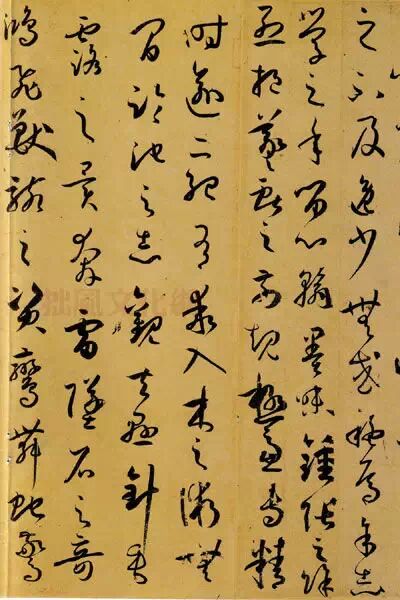 之不及逸少無或疑焉余志
學之年留心翰墨味鍾張之餘
烈挹羲獻之前規極慮專精
時逾二紀有乖入木之術無
間臨池之志觀夫懸針垂
露之異奔雷墜石之奇
鴻飛獸駭之資鸞舞蛇驚
拙風文化網